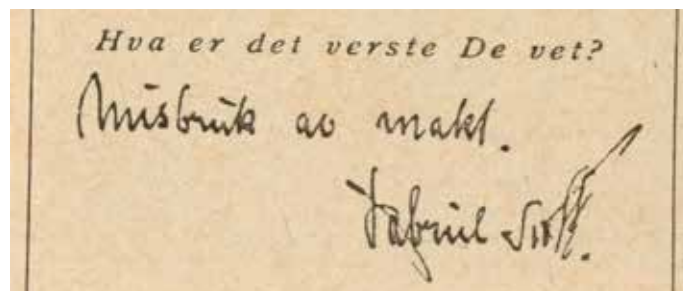 Hva er det verste De vet?
Misbruk av makt.
Gabriel